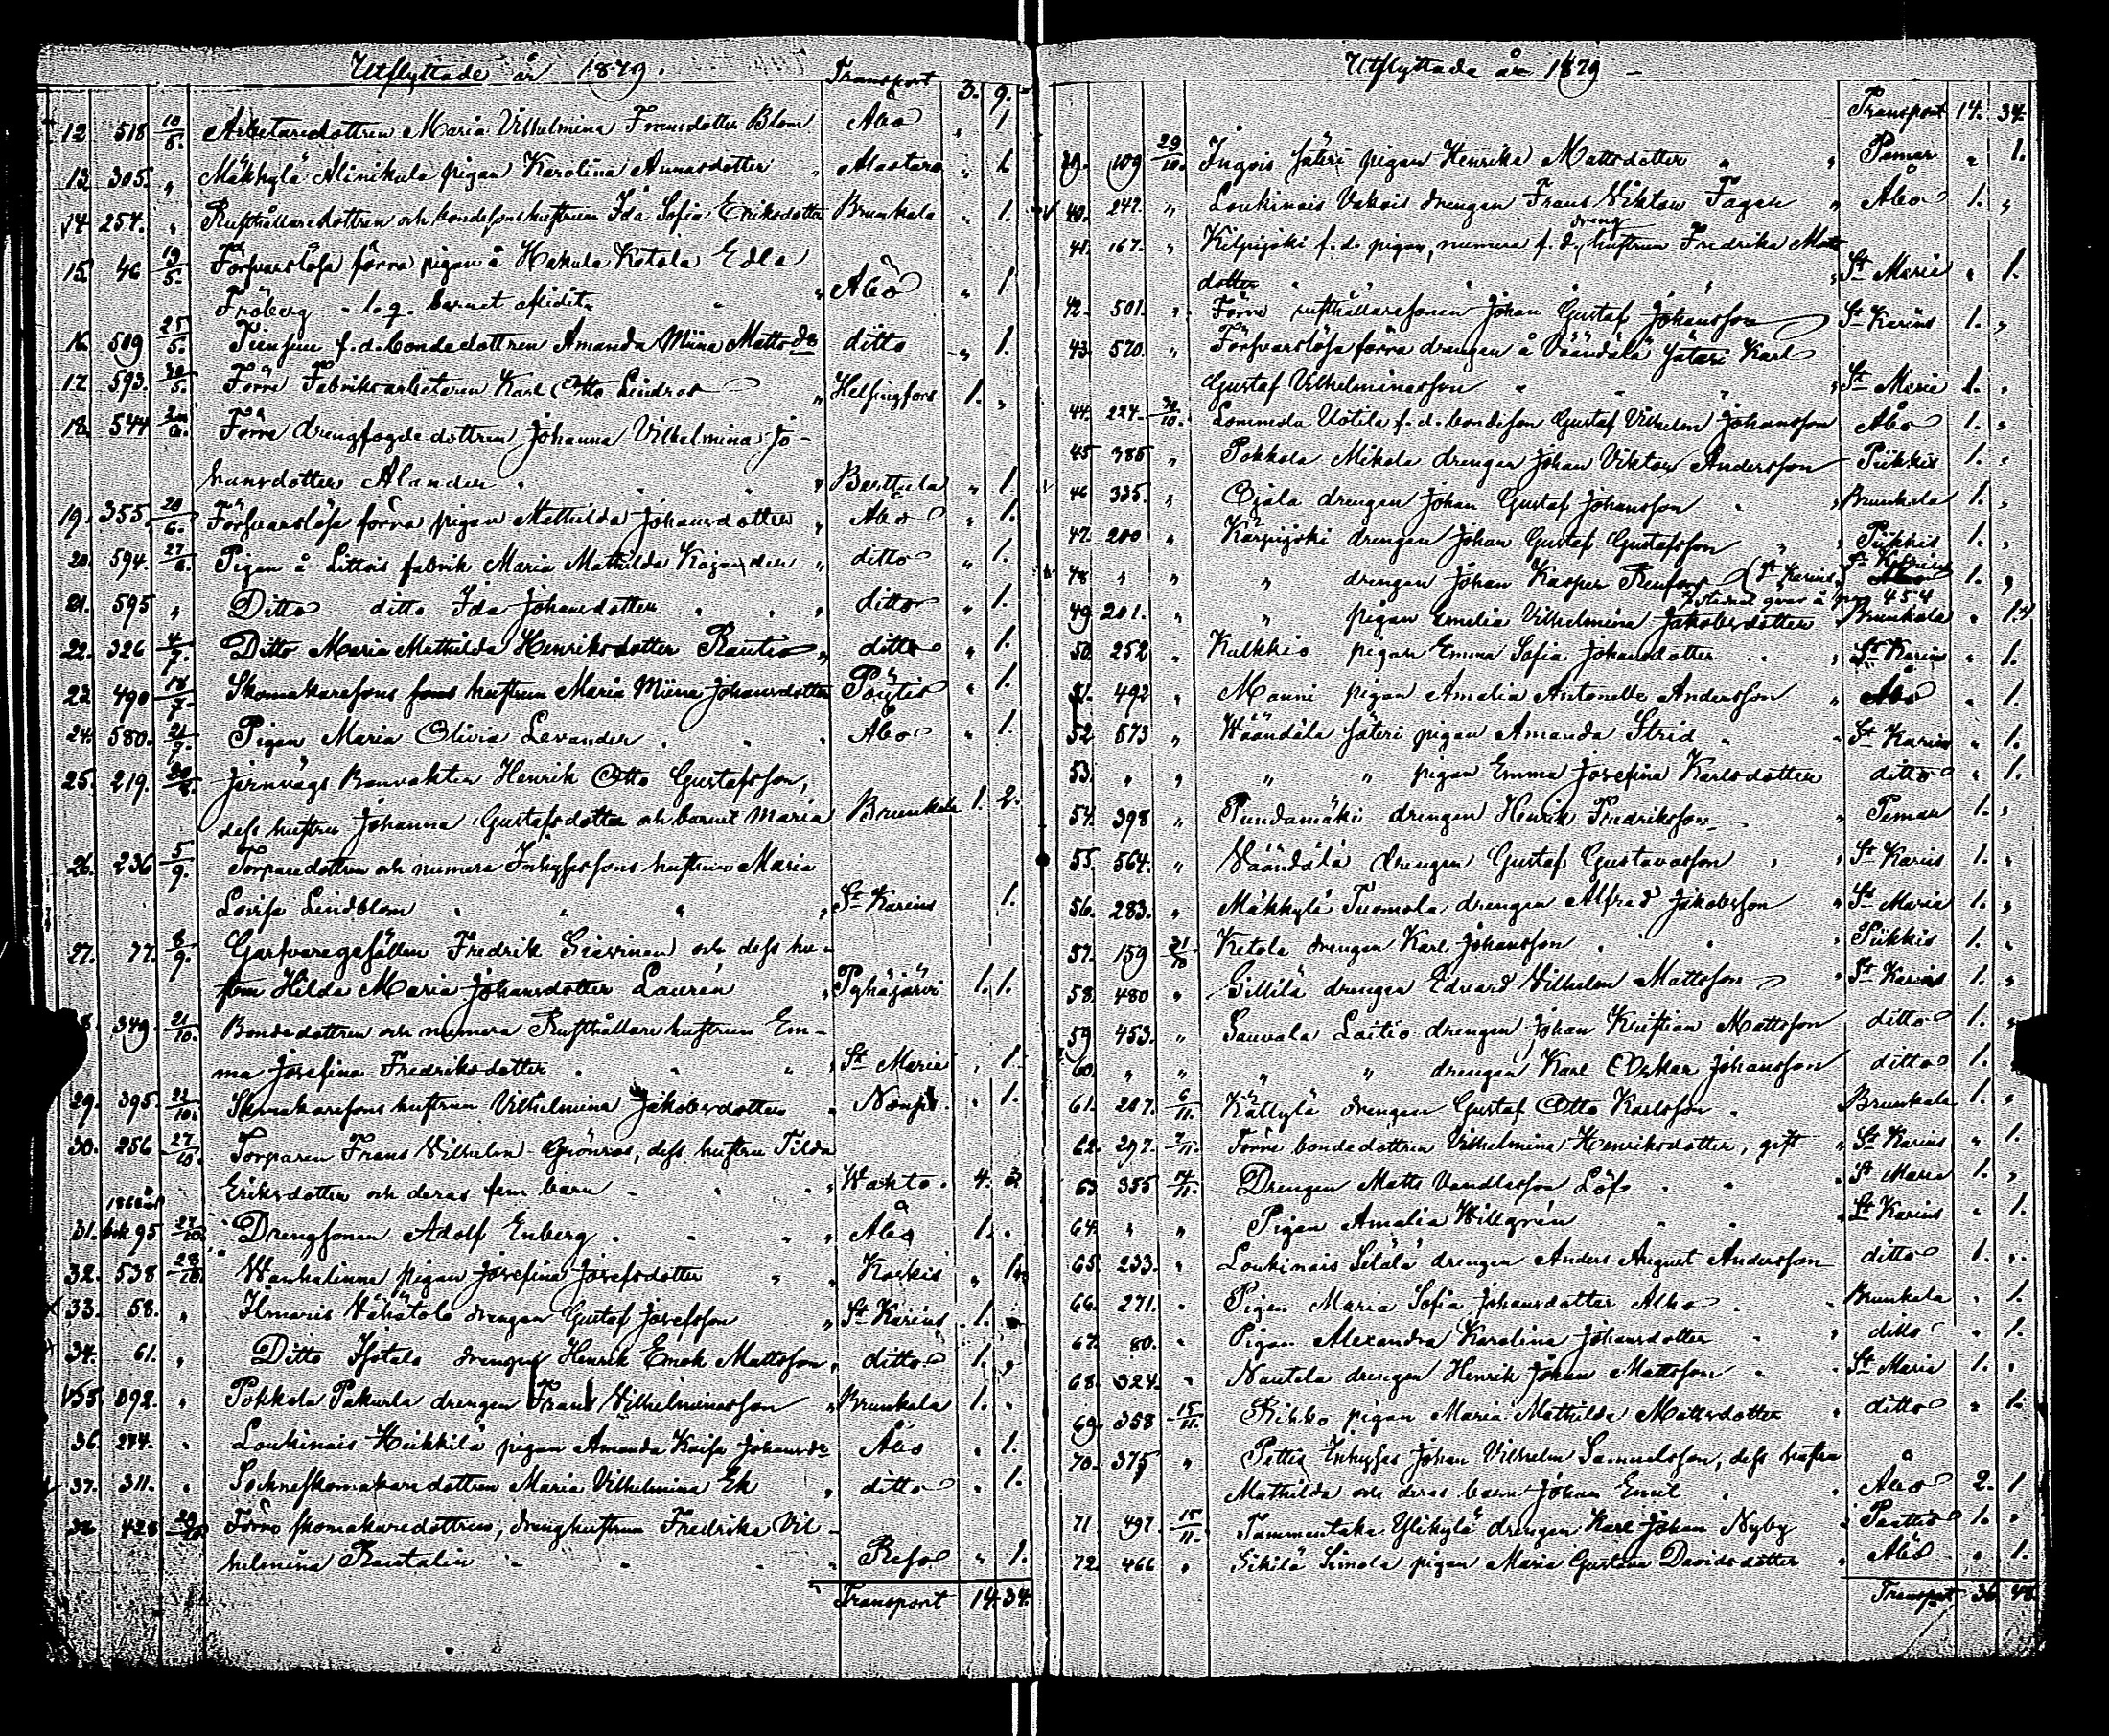 Utflyttade år 1879.
Transport 3. 9.
12 518 10/5. Arbetaredottren Maria Vilhelmina Fransdotter Blom Åbo " 1
13 305. " Mäkkylä Alinikula pigan Karolina Annasdotter " Alastaro " 1
14 254. " Rusthållaredottren och bondesonshustrun Ida Sofia Eriksdotter Brunkala " 1.
15 46 19/5. Försvarslösa förra pigan å Hakula Ketola Edla
Fröberg " Åbo " 1
16 509 25/5. f.d. bondedottren Amanda Miina Mattsdr ditto " 1.
17 593. /5. Förre Fabriksarbetaren Karl Otto Lindros " Helsingfors 1. "
18. 544 Förre drengfogdedottren Johanna Vilhelmina Jo-
hansdotter Alander " " " Berttula " 1.
19. 355. 20/6. Försvarslösa förra pigan Mathilda Johansdotter " Åbo " 1.
20. 594. 27/6. Pigan å Littois fabrik Maria Mathilda Kajander " ditto " 1.
21. 595 " Ditto ditto Ida Johansdotter " " " ditto " 1.
22. 326 4/7. Ditto Maria Mathilda Henriksdotter Rautio " ditto " 1.
23 490 18/7. Skomakaresons hustrun Maria Miina Johansdotter Pöytis " 1.
24. 580. 21/7. Pigan Maria Olivia Levander " " " Åbo " 1.
25. 219. 20/8. Jernvägs Banvakten Henrik Otto Gustafsson,
dess hustru Johanna Gustafsdotter och barnet Maria Brunkala 1. 2.
26. 236 5/9. Torparedottren och numera Inhysessons hustrun Maria
Lovisa Lindblom " " " " St Karins 1.
27. 77. 8/9. Garfvaregesällen Fredrik Siivinen och dess hu-
strun Hilda Maria Johansdotter Laurén " Pyhäjärvi 1. 1.
349. 21/10. Bondedottren och numera Rusthållare hustrun Em-
ma Josefina Fredriksdotter " " " St Maria " 1.
29. 395. 22/10. Skomakaresons hustrun Vilhelmina Jakobsdotter " Nousis " 1.
30. 256 27/10. Torparen Frans Vilhelm Grönros, dess hustru Tilda
Eriksdotter och deras fem barn " " " Wahto. 4. 3
31. bok 95 27/10. Drengsonen Adolf Enberg " " " Åbo 1. "
32. 538 28/10. Wanhalinna pigan Josefina Josefsdotter " " Koskis " 1.
33. 58. " Ilmaris Vähätalo drengen Gustaf Josefsson " St Karins 1.
34. 61. " Ditto Isotalo drengen Henrik Enok Mattsson " ditto 1. "
35. 092. " Pokkola Pakurla drengen Frans Vilhelminasson " Brunkala 1. "
36. 274. " Loukinais Heikkilä pigan Amanda Kaisa Johansdr Åbo " 1.
37. 311. " Sockneskomakaredottren Maria Vilhelmina Ek " ditto " 1.
38 428 29/10 Förre skomakaredottren, dränghustrun Fredrika Vil-
helmina Rautalin " " " Reso " 1.
Transport 14 34.
Utflyttade år 1879
Transport 14. 34.
39. 109 29/10. Ingois säteri pigan Henrika Mattsdotter " " Pemar " 1.
40. 247. " Loukinais Vakois drengen Frans Viktor Fagen " Åbo 1. "
41. 167. " Kilpijoki f.d. pigan, numera f.d. dreng hustrun Fredrika Matts
dotter " " " " St Marie " 1.
42. 501. " Förre rusthållaresonen Johan Gustaf Johansson St Karins 1. "
43. 570. " Försvarslösa förra drengen å Väändälä säteri Karl
Gustaf Vilhelminasson " " " St Marie 1. "
44. 224. 30/10. Lommola Uotila f.d. bondeson Gustaf Vilhelm Johansson Åbo 1. "
45 385 " Pokkola Mikola drengen Johan Viktor Andersson Piikkis 1. "
46 335. " Ojala drengen Johan Gustaf Johansson " Brunkala 1. "
47. 200 " Kärpijoki drengen Johan Gustaf Gustafsson " Piikkis 1. "
48 " " " drengen Johan Kasper Renfors (St Karins, St Katrins 1. "
qvar å pag 454
49. 201. " " pigan Emelia Vilhelmina Jakobsdotter Brunkala " 1.
50. 252 " Kulkkis pigan Emma Sofia Johansdotter " " " St Karins " 1.
51. 492 " Mauni pigan Amalia Antonette Andersson " Åbo " 1.
52 573 " Wäändälä säteri pigan Amanda Strid " " St Karins " 1.
53. " " " " pigan Emma Josefina Karlsdotter ditto " 1.
54. 398 " Pundamäki drengen Henrik Fredriksson " Pemar 1. "
55. 564. " Väändälä drengen Gustaf Gustavasson " St Karins 1. "
56. 283. " Mäkkylä Tuomola drengen Alfred Jakobsson " St Maria 1. "
57. 159 31/10 Ketola drengen Karl Johansson " " Piikkis 1. "
58. 480 " Sillilä drengen Edvard Vilhelm Mattsson " St Karins 1. "
59 453. " Sauvala Laitio drengen Johan Kristian Mattsson ditto 1. "
60. " " " " drengen Karl Oskar Johansson ditto 1.
61. 207. 6/11. Källylä drengen Gustaf Otto Karlsson " Brunkala 1. "
62. 297. 7/11. Förre bondedottren Vilhelmina Henriksdotter, gift " St Karins " 1.
63 355 14/11. Drengen Matts Vandlesson Löf " " St Maria 1. "
64. " " Pigan Amalia Willgrén " " St Karins " 1.
65. 233. " Loukinais Seläla drengen Anders August Andersson ditto 1. "
66. 271. " Pigan Maria Sofia Johansdotter Alho " " Brunkala " 1.
67. 80. " Pigan Alexandra Karolina Johansdotter " " ditto " 1.
68. 324. " Nautela drengen Henrik Johan Mattsson " " St Maria 1. "
69. 358 15/11. Riihko pigan Maria Mathilda Mattsdotter " ditto " 1.
70. 375 " Pettis Inhyses Johan Vilhelm Samuelsson, dess hustru
Mathilda och deras barn Johan Emil " " Åbo 2. 1
71. 497. 15/11. Tammentaka Ylikylä drengen Karl Johan Nyby " Paattis 1. "
72. 466 " Sikilä Simola pigan Maria Gustava Davidsdotter " Åbo " 1.
Transport 36 48.